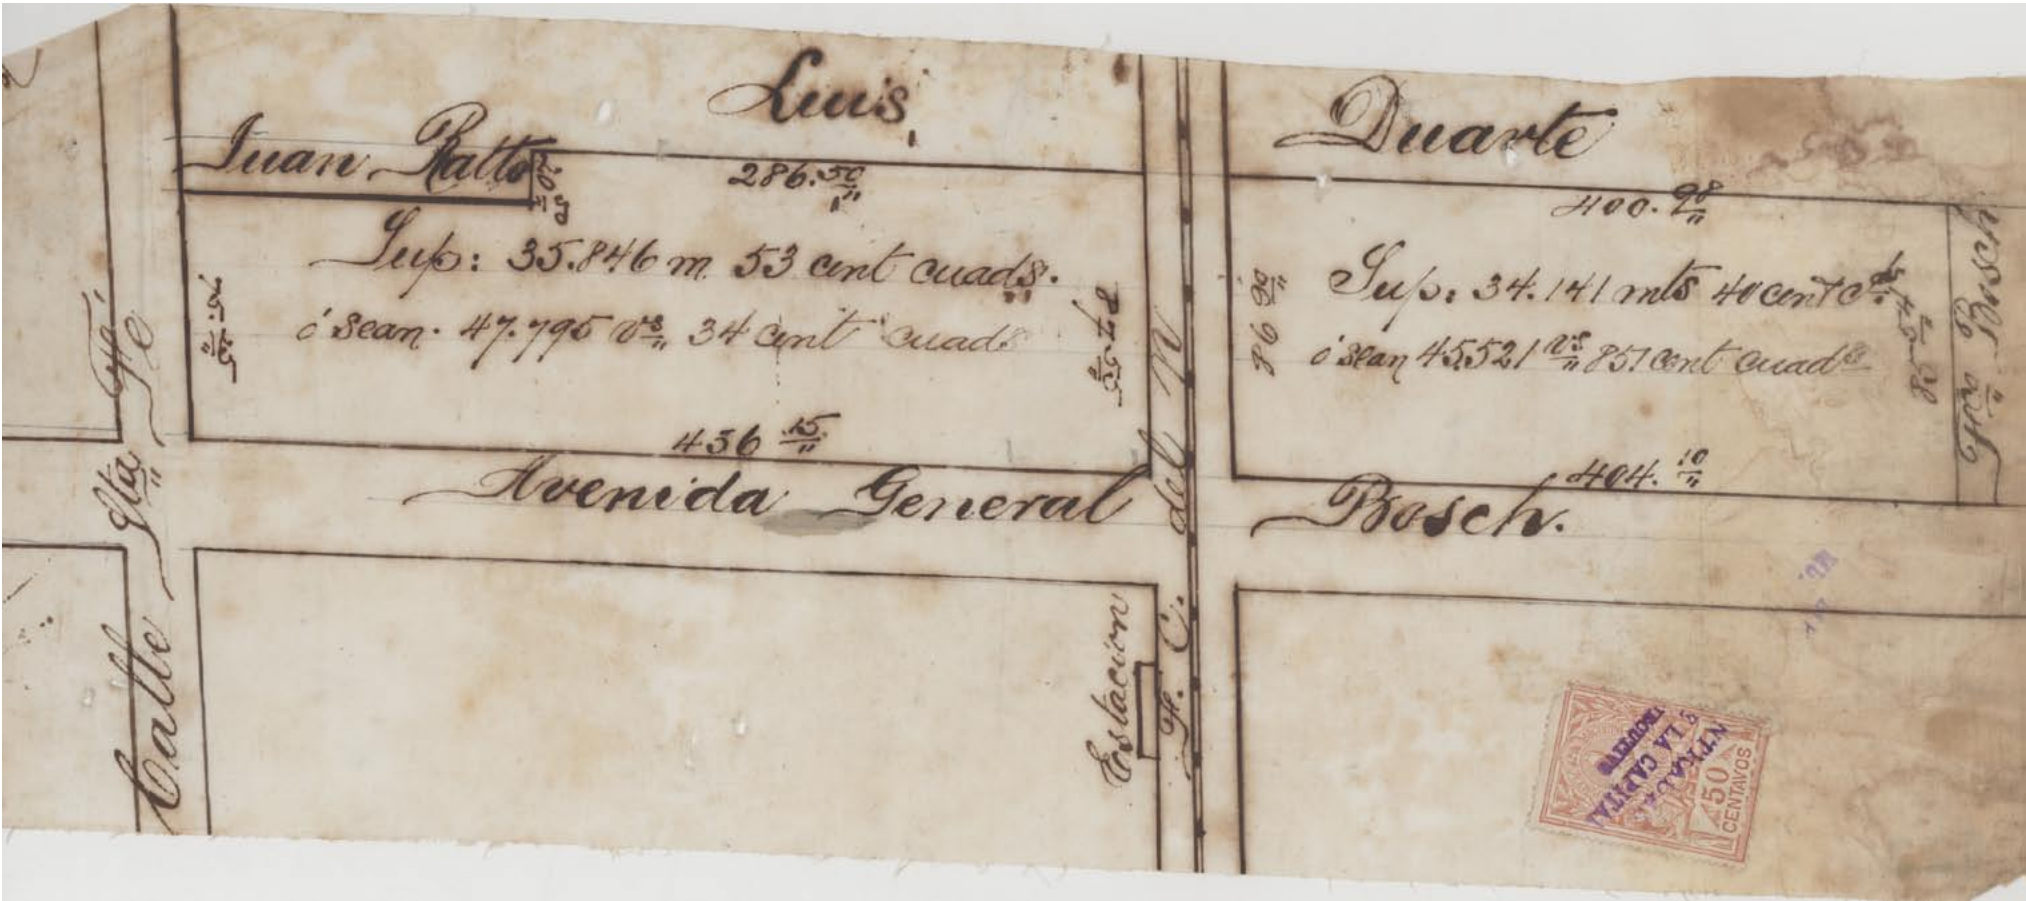 Luis Duarte
Juan Ratto
286.50
400.98
Sup: 35.846 m. 53 cent cuads.
ó sean. 47.795 vs 34 cent cuads
87.55
86 90
Sup: 34.141 mts 40 cent cs.
ó sean 45521 vs 851 cent cuads
Bosch
436 15
404. 10
Avenida General Bosch.
Calle Sta Fé
Sta Fé
F. C. del N
Estacion
LA CAPITAL
50
CENTAVOS